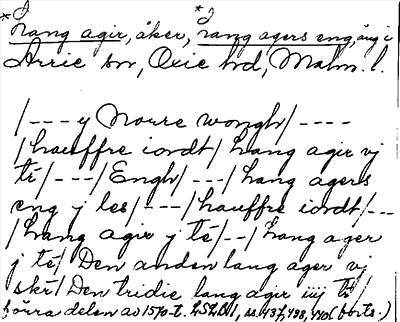 *J *J
Lang agir, åker, Lang agers eng, äng i
Arrie sn, Oxie hd, Malm. l.
/--- y Norre wongh/----
/hauffre iordt/ hang agir vj
té/---/Engh/---/hang agers
eng y les/---/hauffre iordt/--
/hang agir j té/--/hang ager
j té/ Den anden lang ager vj
skr/ Den tridie lang ager iiij té/
förra delen av 1570-t. LSLDII, ss. 437, 438, 440 (forts.)